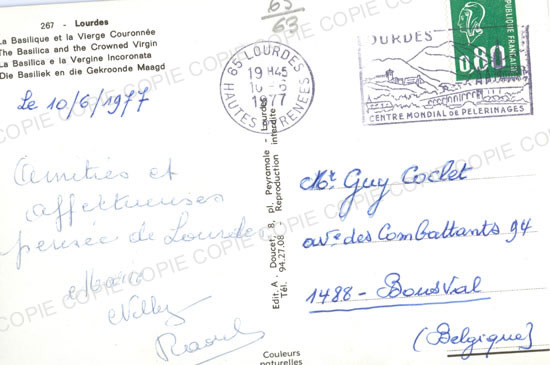 267 - Lourdes
La Basilique et la Vierge Couronnée
The Basilica and the Crowned Virgin
La Basilica e la Vergine Incoronata
Die Basiliek en de Gekroonde Maagd
Le 10/6/1977
Amitiés et
affectueuses
pensée de Lourdes
Willy
Raoul
63
63
65 LOURDES
19 H45
1977
HAUTES PYRENEES
LOURDES
CENTRE MONDIAL DE PELERINAGES
0,80
REPUBLIQUE FRANÇAISE
Edit. A. Doucet, 8, pl. Peyramale - Lourdes
Tél. 94.27.08 Reproduction interdite
Mr. Guy Coclet
ave des Combattants 94
1488 - Bousval
(Belgique)
Couleurs
naturelles
COPIE COPIE COPIE COPIE COPIE